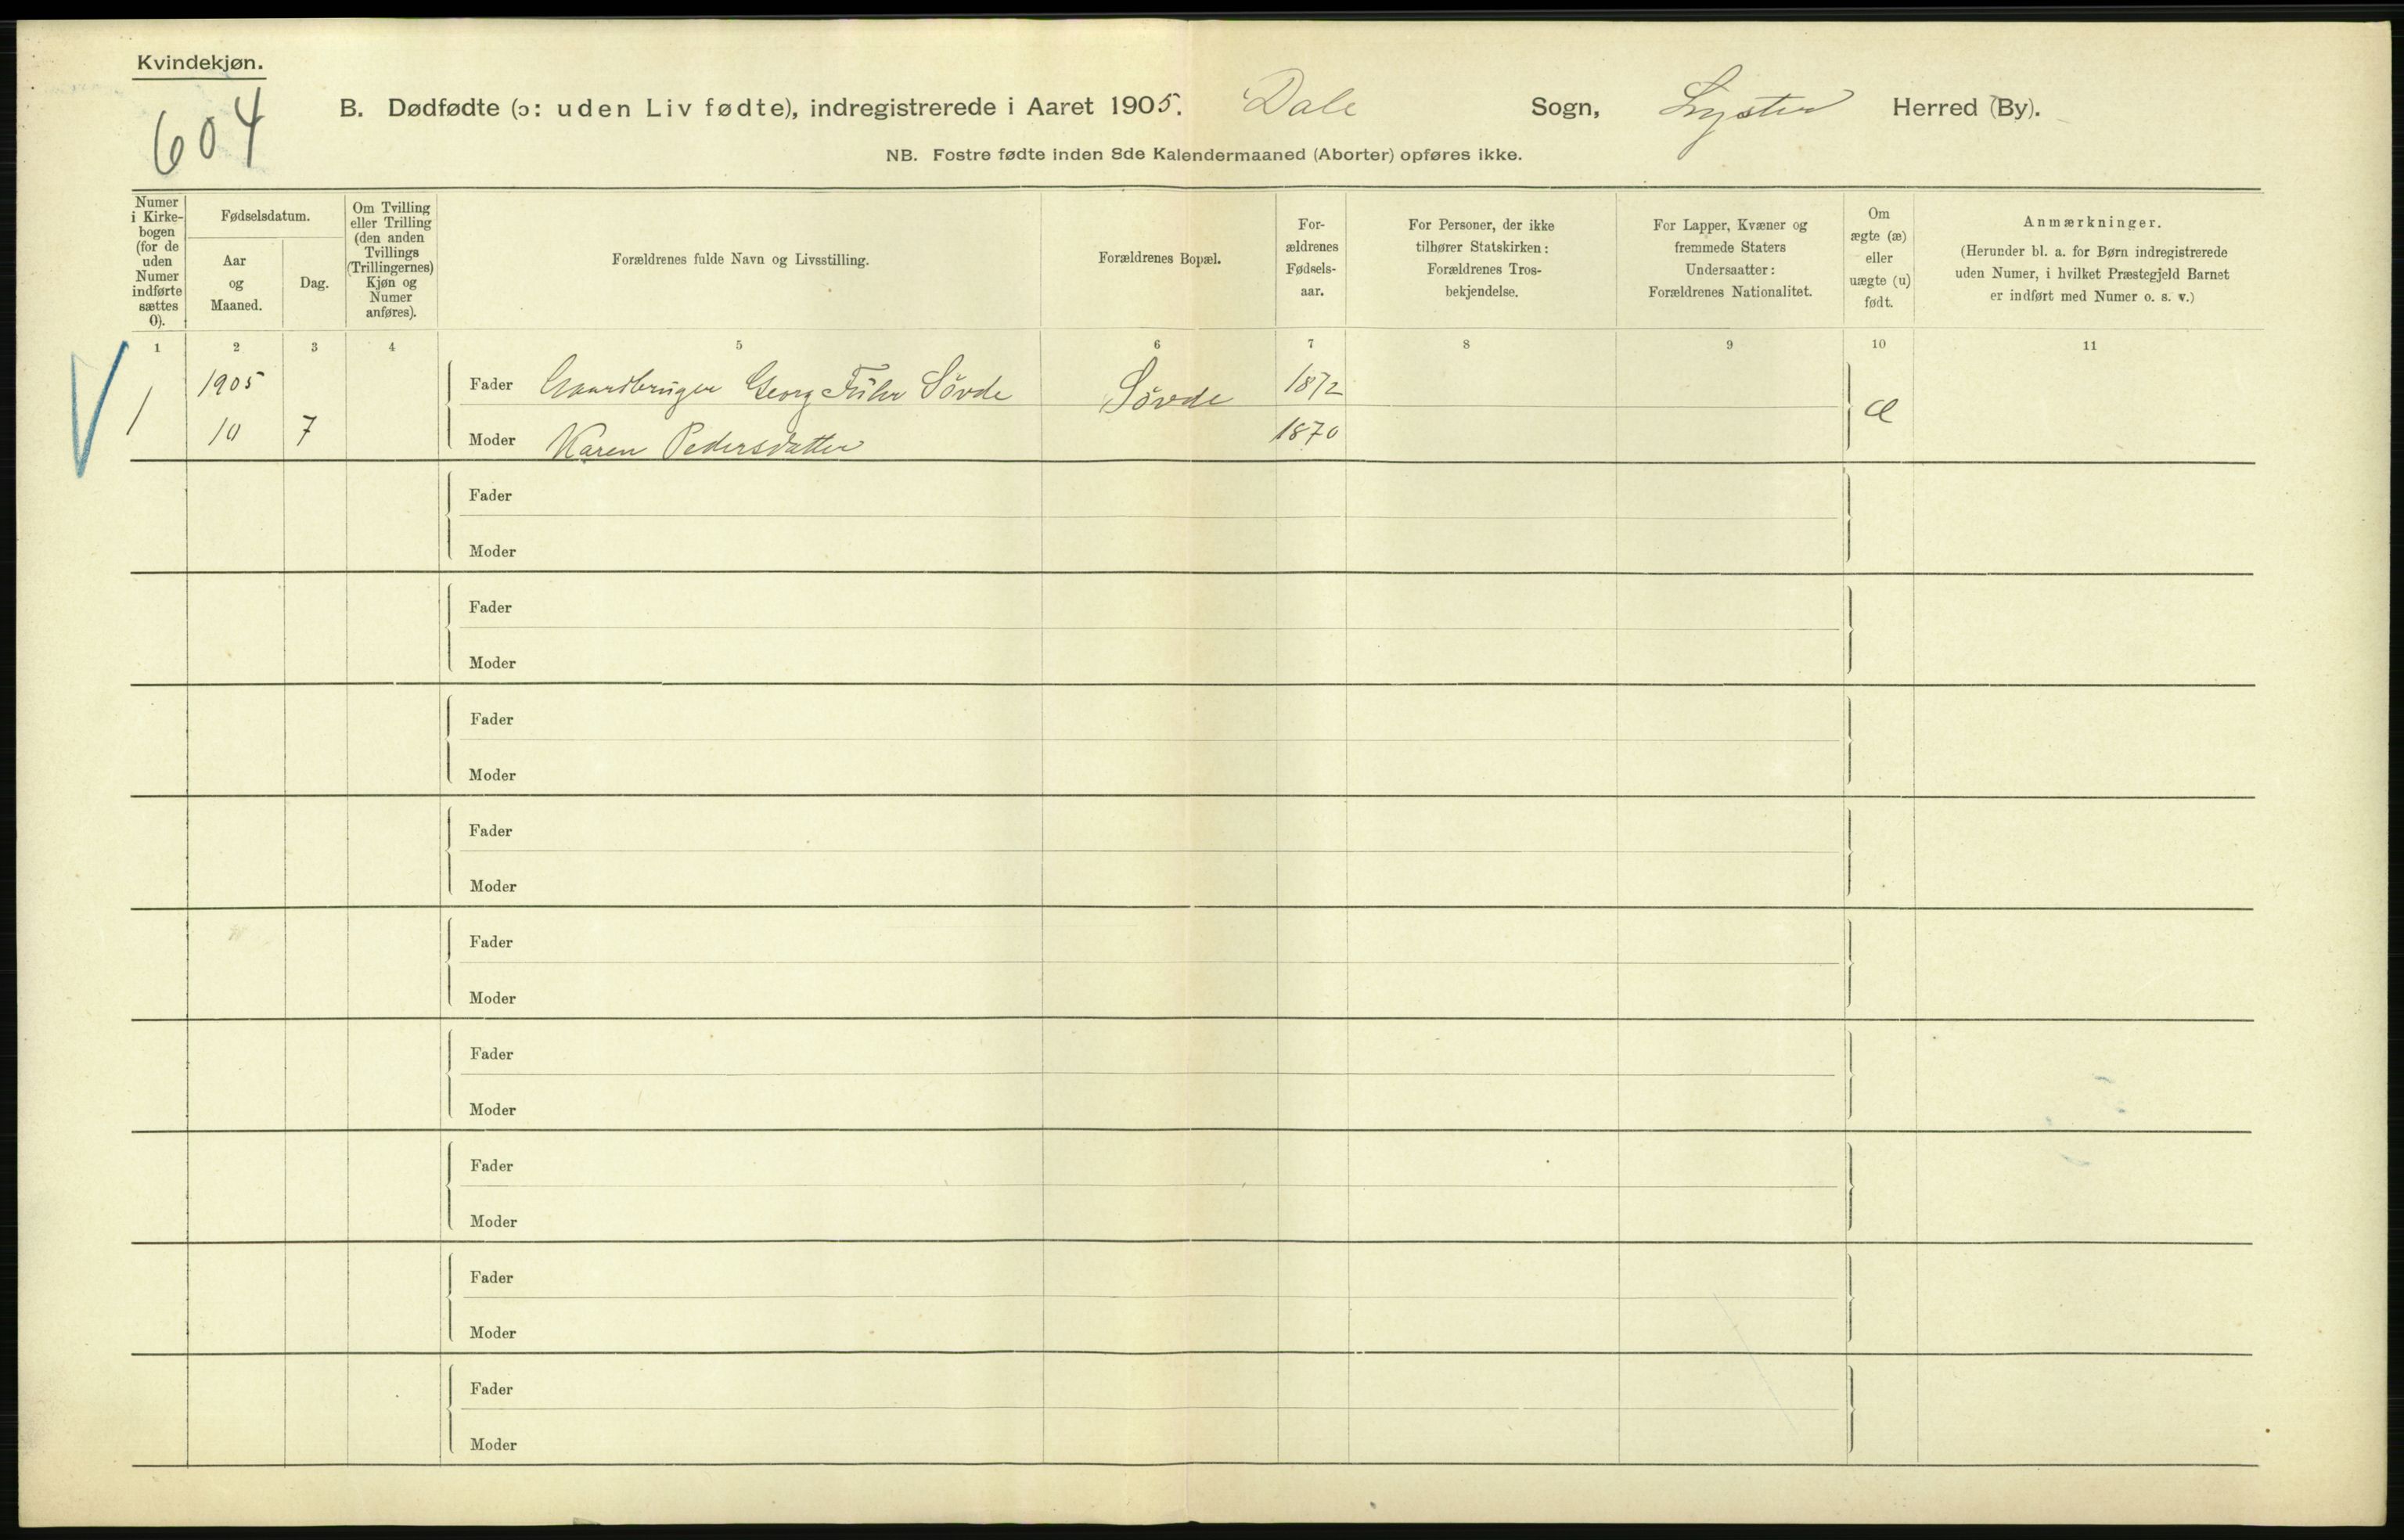 Kvindekjøn.
604
B. Dødfødte (ɔ: uden Liv fødte), indregistrerede i Aaret 1905. Dale Sogn, Lyster Herred (By).
NB. Fostre fødte inden 8de Kalendermaaned (Aborter) opføres ikke.
Numer i Kirke-bogen (for de uden Numer indførte sættes 0).
Fødselsdatum.
Aar og Maaned.
Dag.
Om Tvilling eller Trilling (den anden Tvillings (Trillingernes) Kjøn og Numer anføres).
Forældrenes fulde Navn og Livsstilling.
Forældrenes Bopæl.
For-ældrenes Fødsels-aar.
For Personer, der ikke tilhører Statskirken: Forældrenes Tros-bekjendelse.
For Lapper, Kvæner og fremmede Staters Undersaatter: Forældrenes Nationalitet.
Om ægte (æ) eller uægte (u) født.
Anmærkninger.
(Herunder bl. a. for Børn indregistrerede uden Numer, i hvilket Præstegjeld Barnet er indført med Numer o. s. v.)
1 2 3 4 5 6 7 8 9 10 11
1905 Fader Gaardbruger Georg Führ Sövde Sövde 1872
1 10 7 Moder Karen Pedersdatter 1870 æ
Fader
Moder
Fader
Moder
Fader
Moder
Fader
Moder
Fader
Moder
Fader
Moder
Fader
Moder
Fader
Moder
Fader
Moder